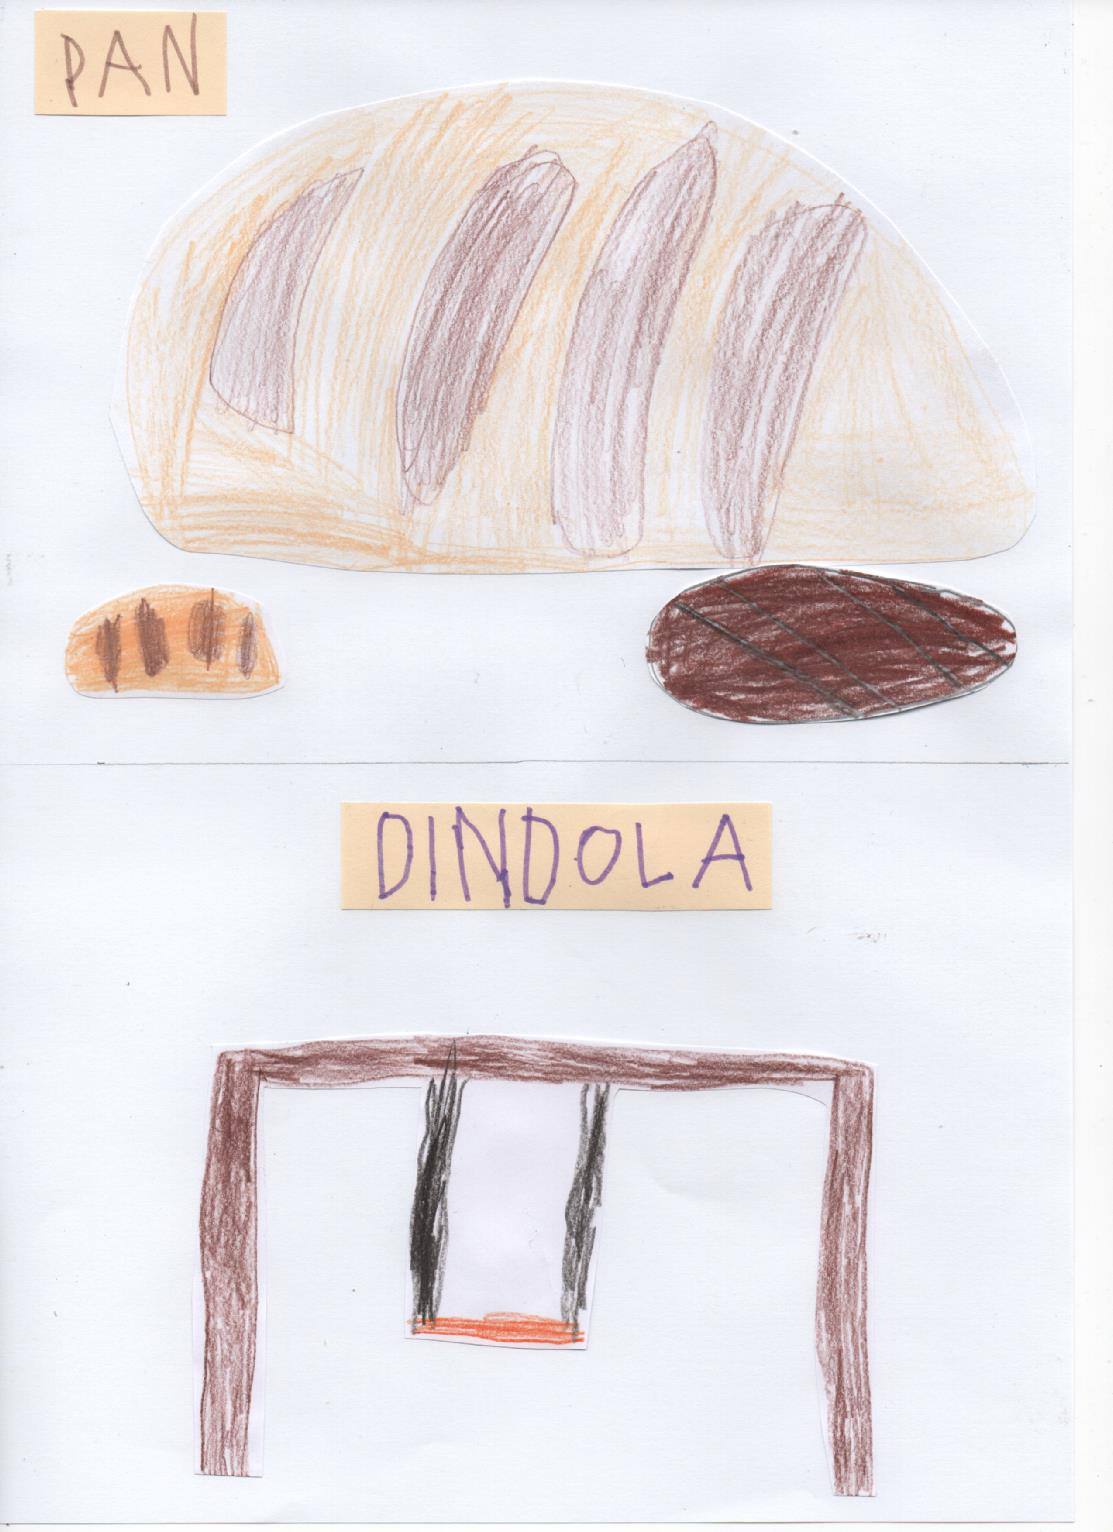 PAN
DINDOLA